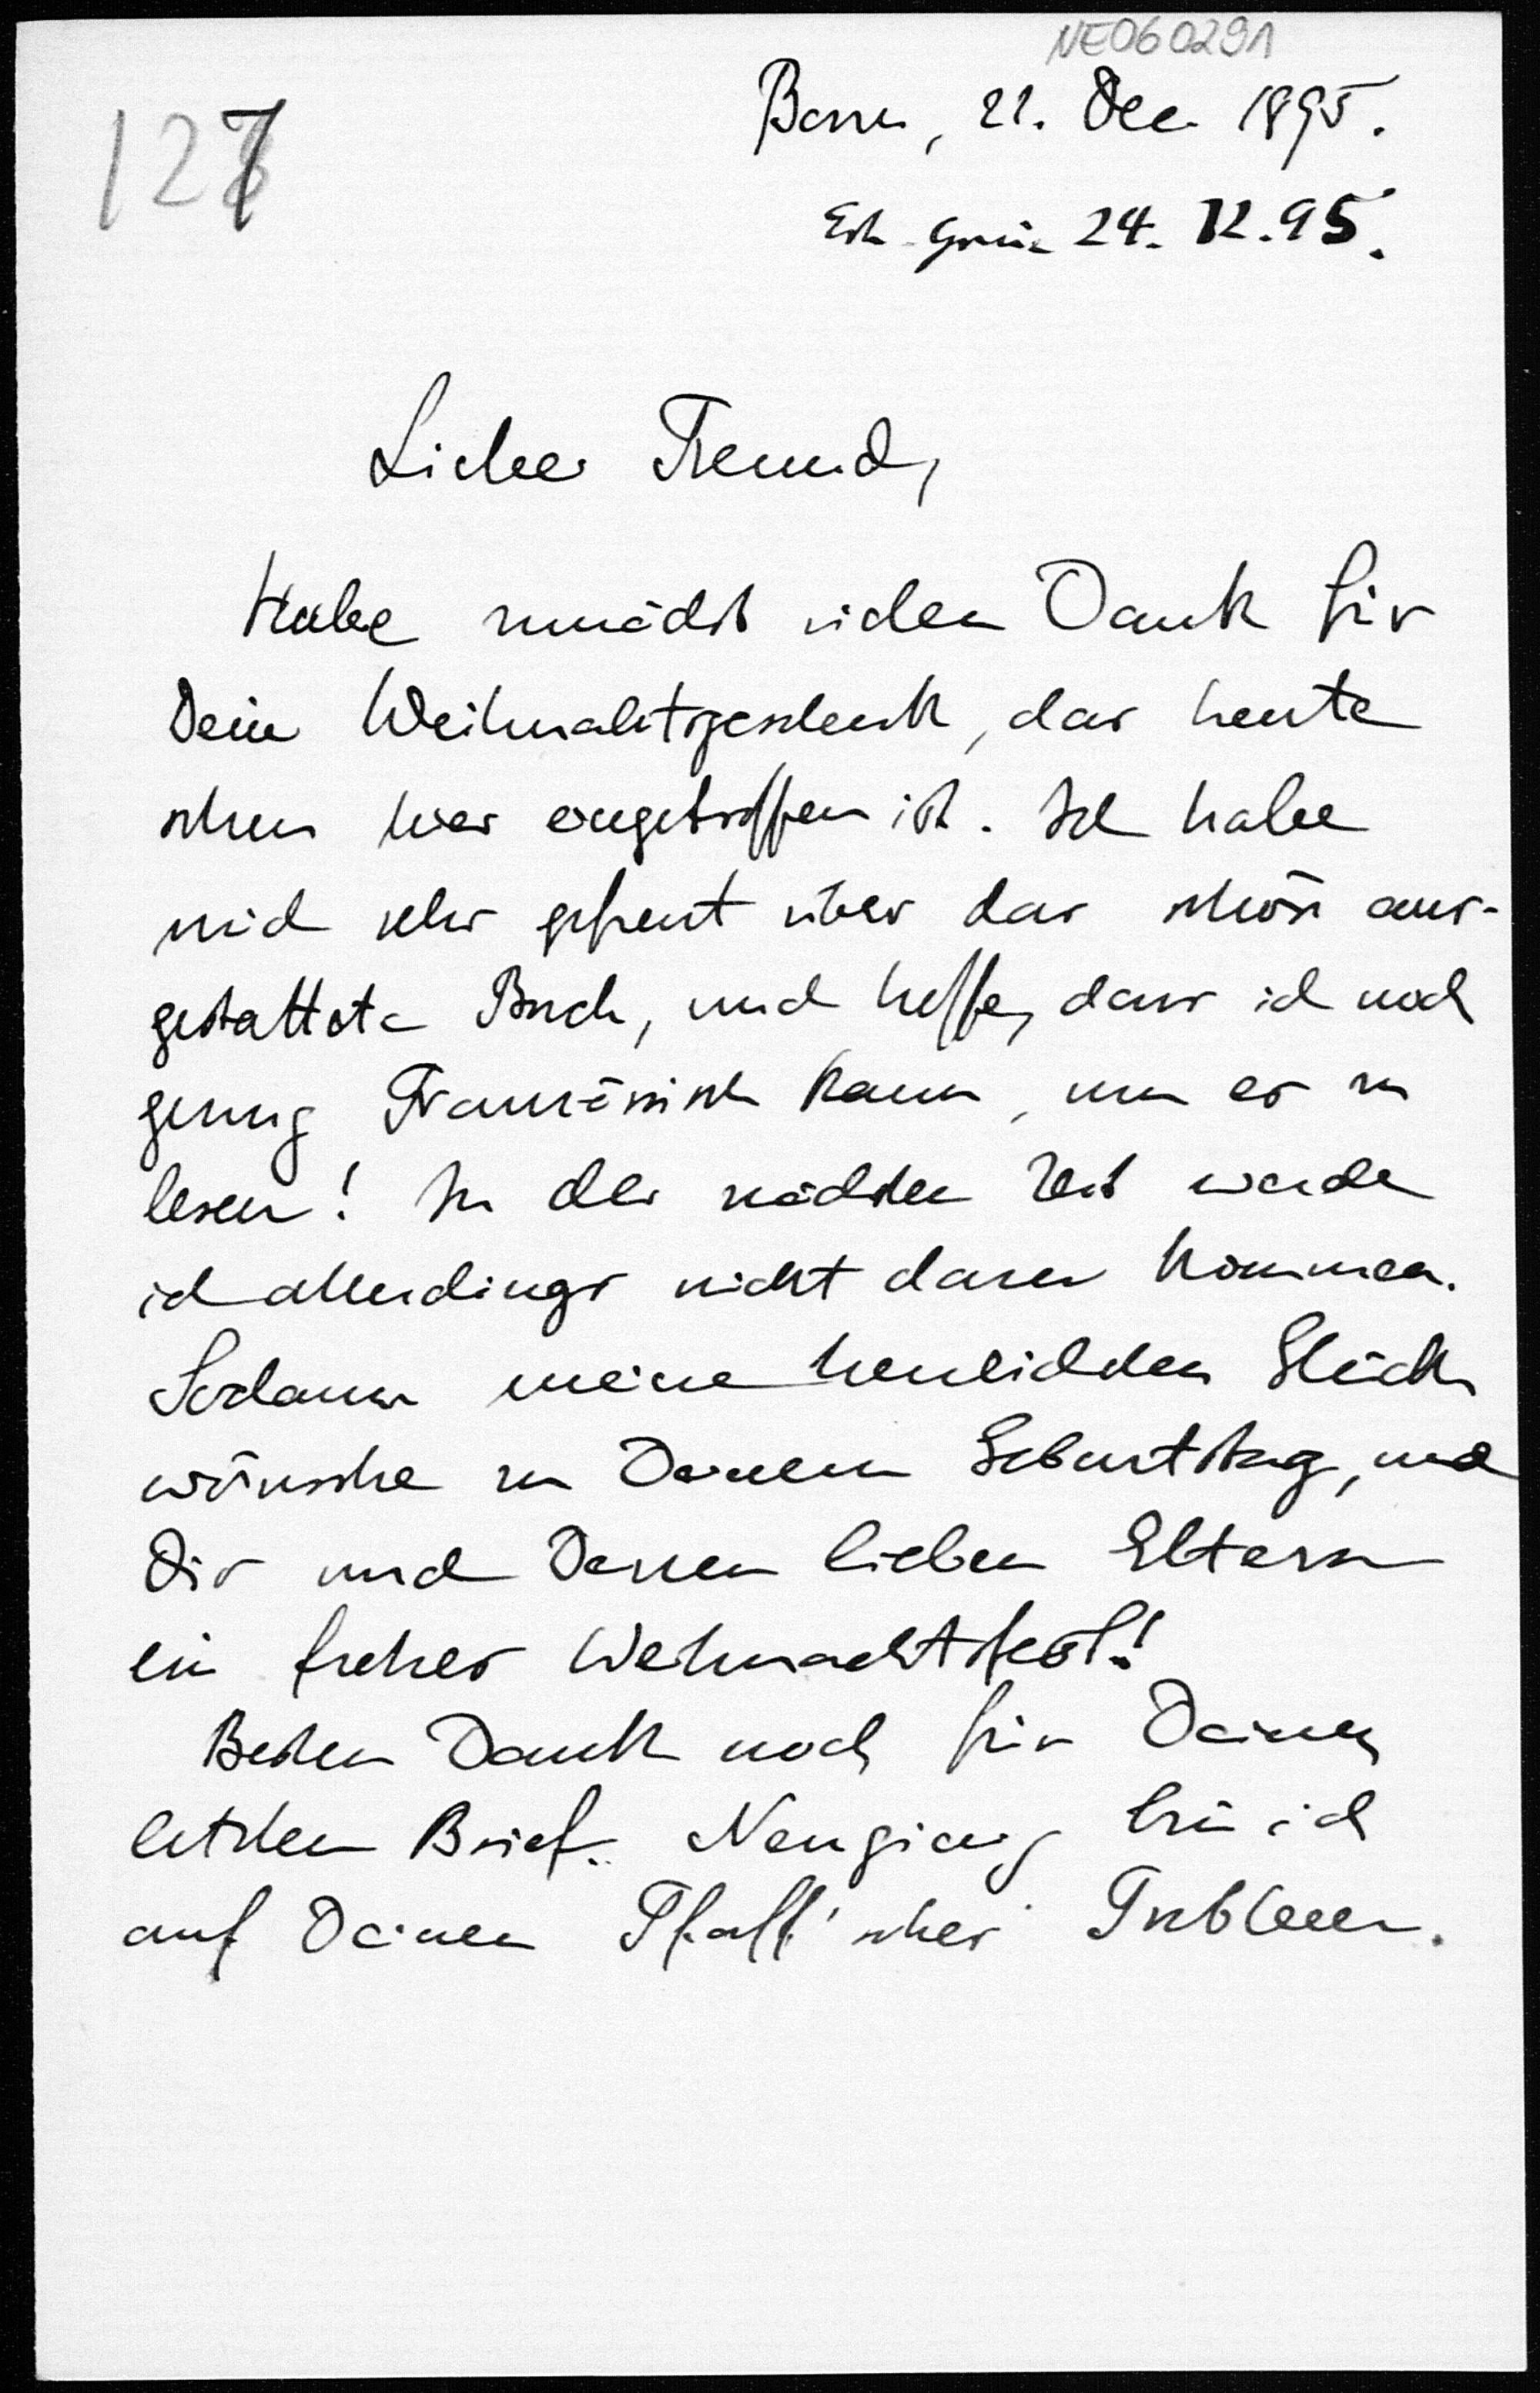 NE060291
127
Bonn, 21. Dec 1895.
Erh. Grün 24. 12. 95.
Lieber Freund,
Habe zunächst vielen Dank für
Dein Weihnachtsgeschenk, das heute
schon hier eingetroffen ist. Ich habe
mich sehr gefreut über das schön aus-
gestattete Buch, und hoffe, dass ich noch
genug Französisch kann, um es zu
lesen! In der nächsten Zeit werde
ich allerdings nicht daran kommen.
Sodann meine herzlichsten Glück
wünsche zu Deinem Geburtstag, und
Dir und Deinen lieben Eltern
ein frohes Weihnachtsfest!
Besten Dank noch für Deinen
letzten Brief. Neugierig bin ich
auf Deinen Pfaff'schen